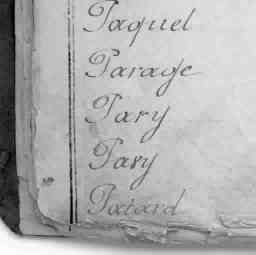 Paquel
Parage
Pary
Pavy
Patard